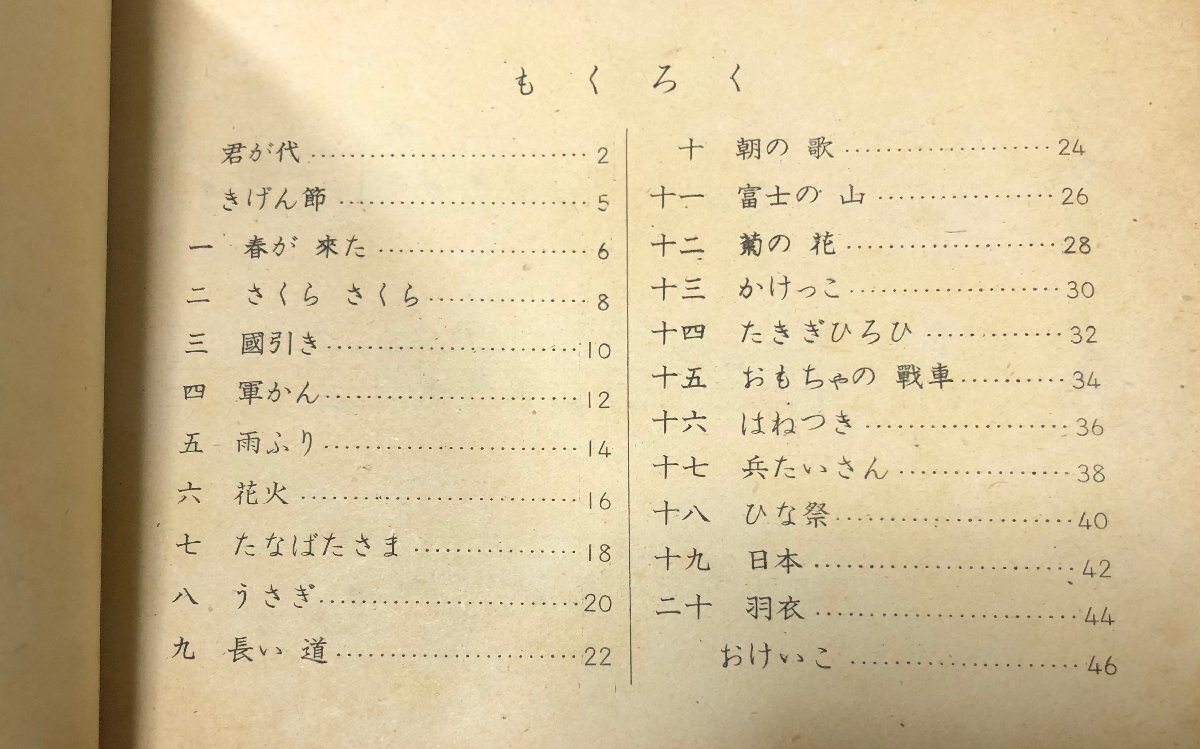 もくろく
君が代……………………2
きげん節……………………5
一 春が 來た……………………6
二 さくら さくら……………………8
三 國引き……………………10
四 軍かん……………………12
五 雨ふり……………………14
六 花火……………………16
七 たなばたさま……………………18
八 うさぎ……………………20
九 長い 道……………………22
十 朝の 歌……………………24
十一 富士の 山……………………26
十二 菊の 花……………………28
十三 かけっこ……………………30
十四 たきぎひろひ……………………32
十五 おもちゃの 戰車……………………34
十六 はねつき……………………36
十七 兵たいさん……………………38
十八 ひな祭……………………40
十九 日本……………………42
二十 羽衣……………………44
おけいこ……………………46